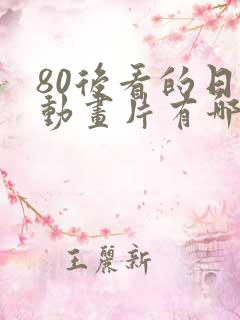 80後看的日
動畫片有哪
王麗新